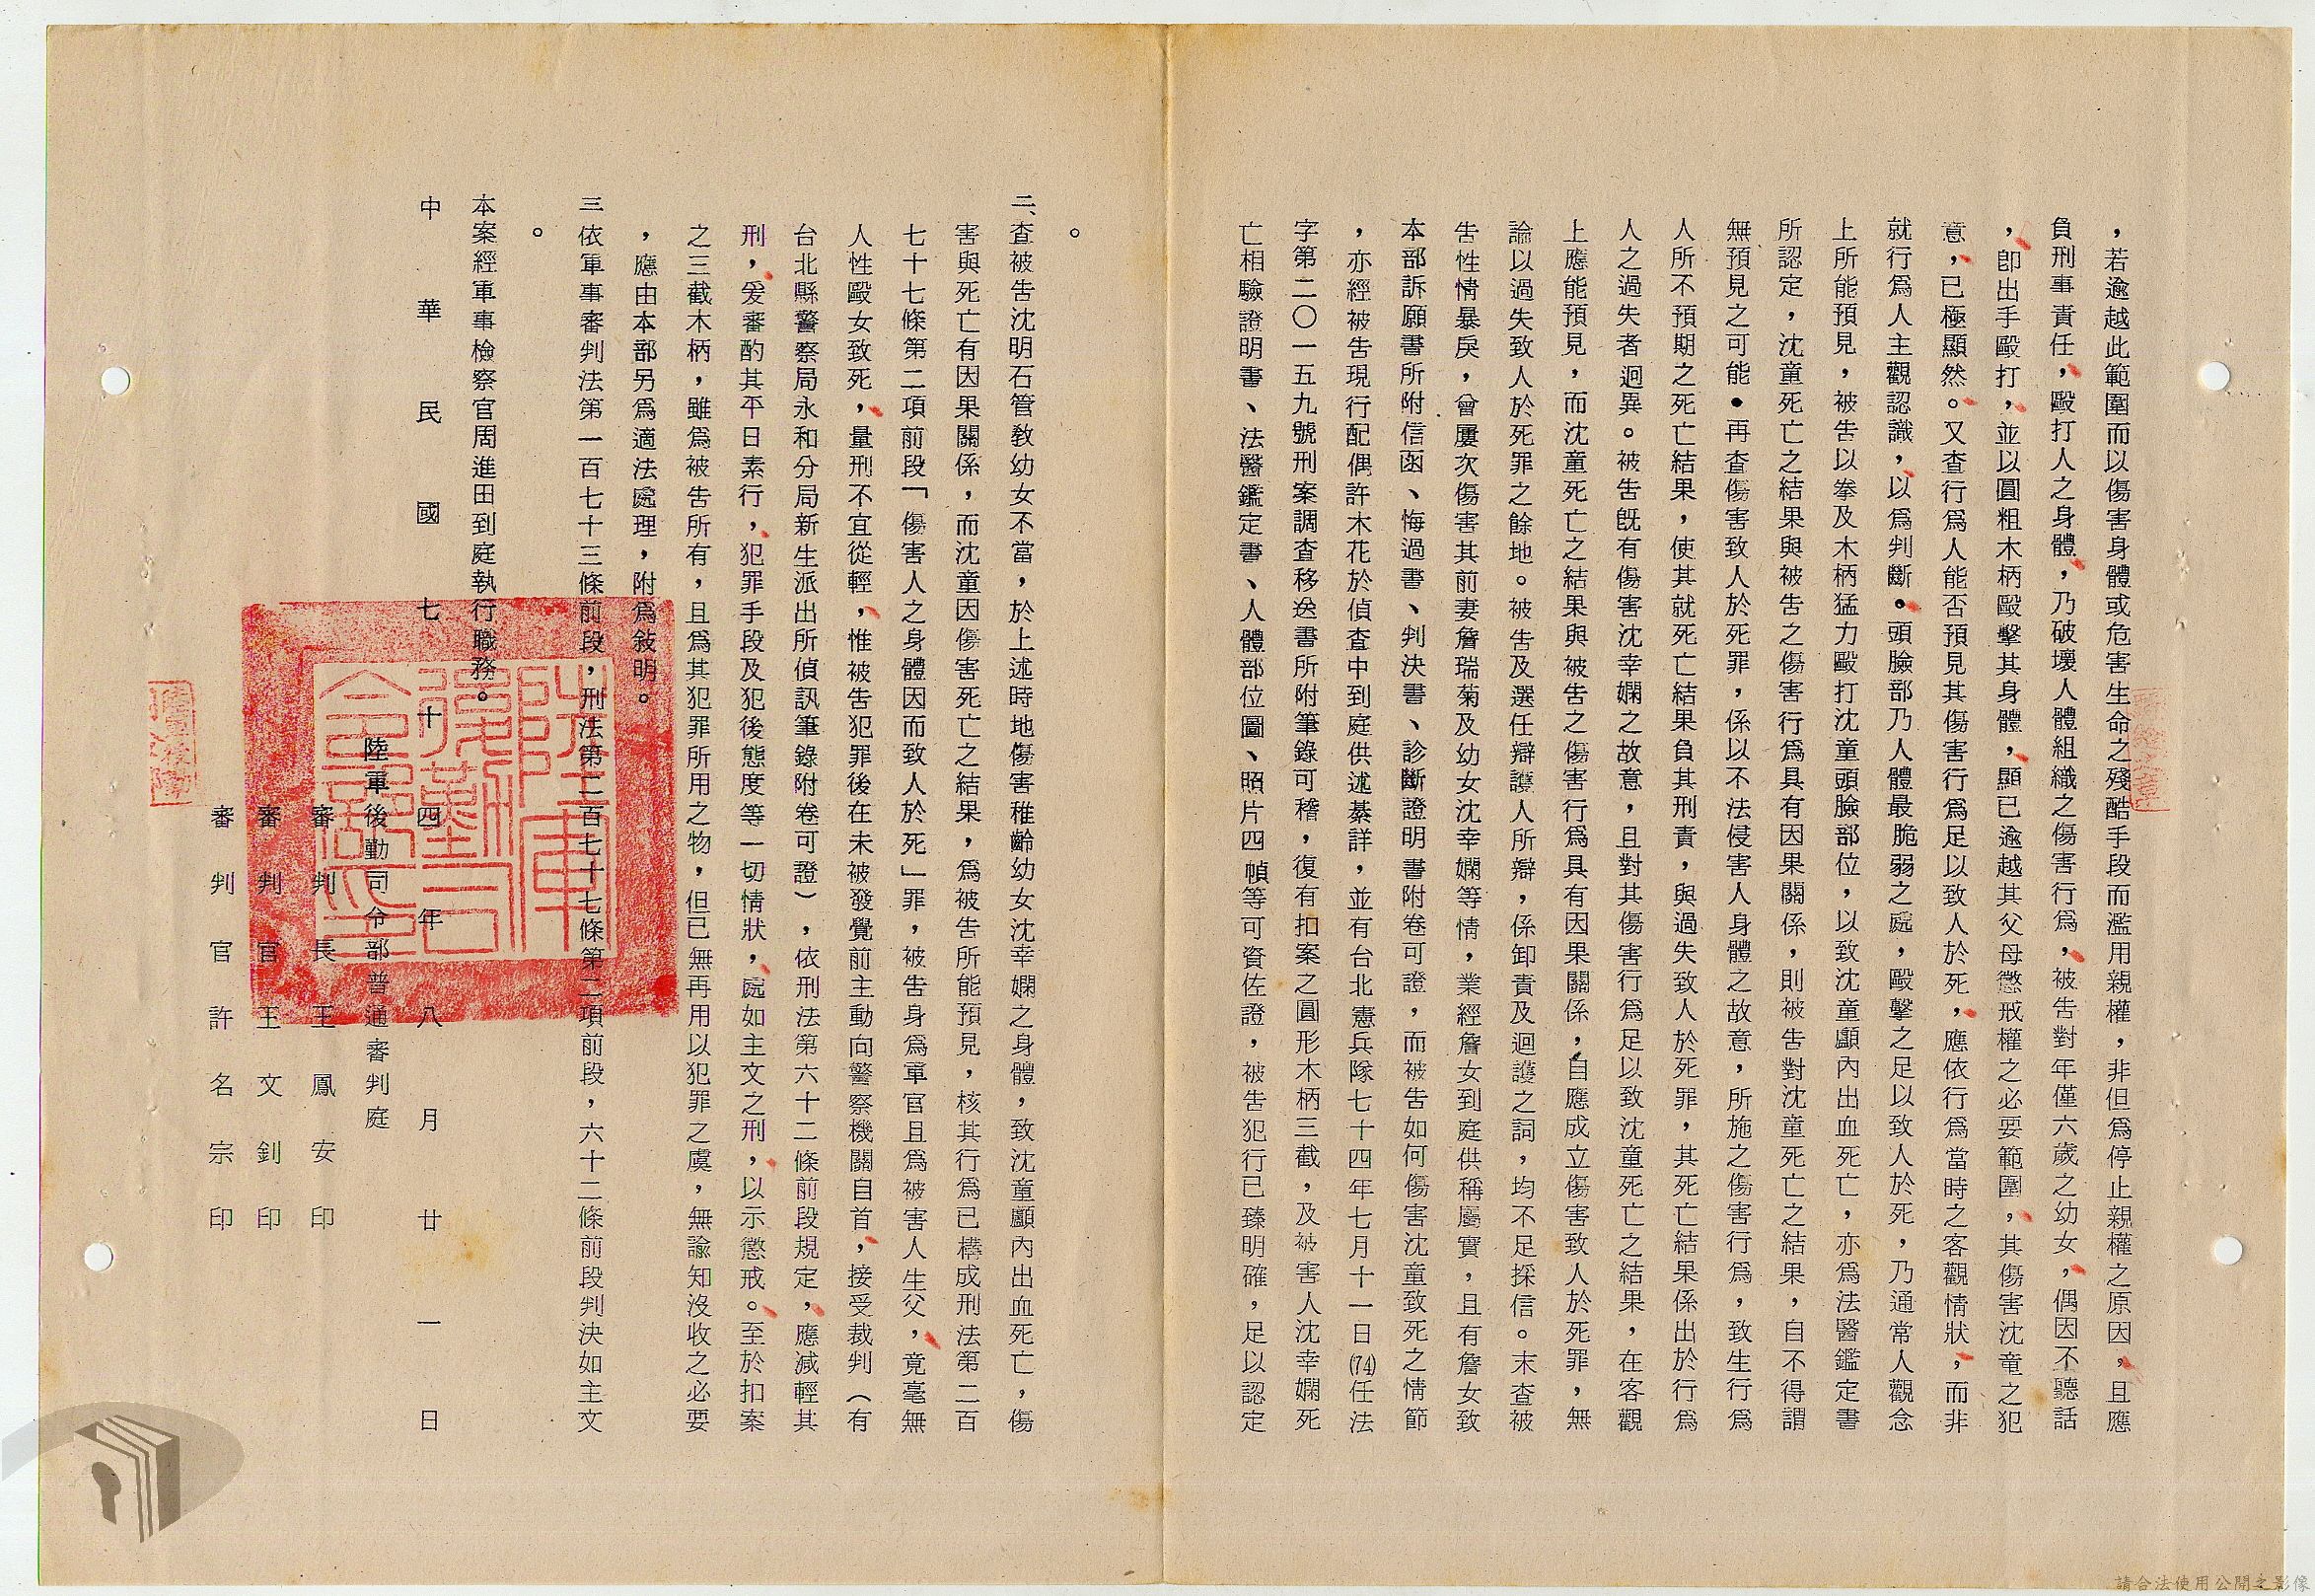 ，若逾越此範圍而以傷害身體或危害生命之殘酷手段而濫用親權，非但爲停止親權之原因，且應
負刑事責任，毆打人之身體，乃破壞人體組織之傷害行爲，被告對年僅六歲之幼女，偶因不聽話
，卽出手毆打，並以圓粗木柄毆擊其身體，顯已逾越其父母懲戒權之必要範圍，其傷害沈童之犯
意，已極顯然。又查行爲人能否預見其傷害行爲足以致人於死，應依行爲當時之客觀情狀，而非
就行爲人主觀認識，以爲判斷。頭臉部乃人體最脆弱之處，毆擊之足以致人於死，乃通常人觀念
上所能預見，被告以拳及木柄猛力毆打沈童頭臉部位，以致沈童顱內出血死亡，亦爲法醫鑑定書
所認定，沈童死亡之結果與被告之傷害行爲具有因果關係，則被告對沈童死亡之結果，自不得謂
無預見之可能。再查傷害致人於死罪，係以不法侵害人身體之故意，所施之傷害行爲，致生行爲
人所不預期之死亡結果，使其就死亡結果負其刑責，與過失致人於死罪，其死亡結果係出於行爲
人之過失者迥異。被告旣有傷害沈幸嫻之故意，且對其傷害行爲足以致沈童死亡之結果，在客觀
上應能預見，而沈童死亡之結果與被告之傷害行爲具有因果關係，自應成立傷害致人於死罪，無
論以過失致人於死罪之餘地。被告及選任辯護人所辯，係卸責及迴護之詞，均不足採信。末查被
告性情暴戾，曾屢次傷害其前妻詹瑞菊及幼女沈幸嫻等情，業經詹女到庭供稱屬實，且有詹女致
本部訴願書所附信函、悔過書、判決書、診斷證明書附卷可證，而被告如何傷害沈童致死之情節
，亦經被告現行配偶許木花於偵查中到庭供述綦詳，並有台北憲兵隊七十四年七月十一日(74)任法
字第二〇一五九號刑案調查移送書所附筆錄可稽，復有扣案之圓形木柄三截，及被害人沈幸嫻死
亡相驗證明書、法醫鑑定書、人體部位圖、照片四幀等可資佐證，被告犯行已臻明確，足以認定
。
二、查被告沈明石管敎幼女不當，於上述時地傷害稚齡幼女沈幸嫻之身體，致沈童顱內出血死亡，傷
害與死亡有因果關係，而沈童因傷害死亡之結果，爲被告所能預見，核其行爲已構成刑法第二百
七十七條第二項前段「傷害人之身體因而致人於死」罪，被告身爲軍官且爲被害人生父，竟毫無
人性毆女致死，量刑不宜從輕，惟被告犯罪後在未被發覺前主動向警察機關自首，接受裁判（有
台北縣警察局永和分局新生派出所偵訊筆錄附卷可證），依刑法第六十二條前段規定，應減輕其
刑，爰審酌其平日素行，犯罪手段及犯後態度等一切情狀，處如主文之刑，以示懲戒。至於扣案
之三截木柄，雖爲被告所有，且爲其犯罪所用之物，但已無再用以犯罪之虞，無諭知沒收之必要
，應由本部另爲適法處理，附爲敍明。
三依軍事審判法第一百七十三條前段，刑法第二百七十七條第二項前段，六十二條前段判決如主文
。
本案經軍事檢察官周進田到庭執行職務。
中華民國七十四年八月廿一日
陸軍後勤司令部普通審判庭
審判長王鳳安印
審判官王文釗印
審判官許名宗印
陸軍後勤司令部印
請合法使用公開之影像